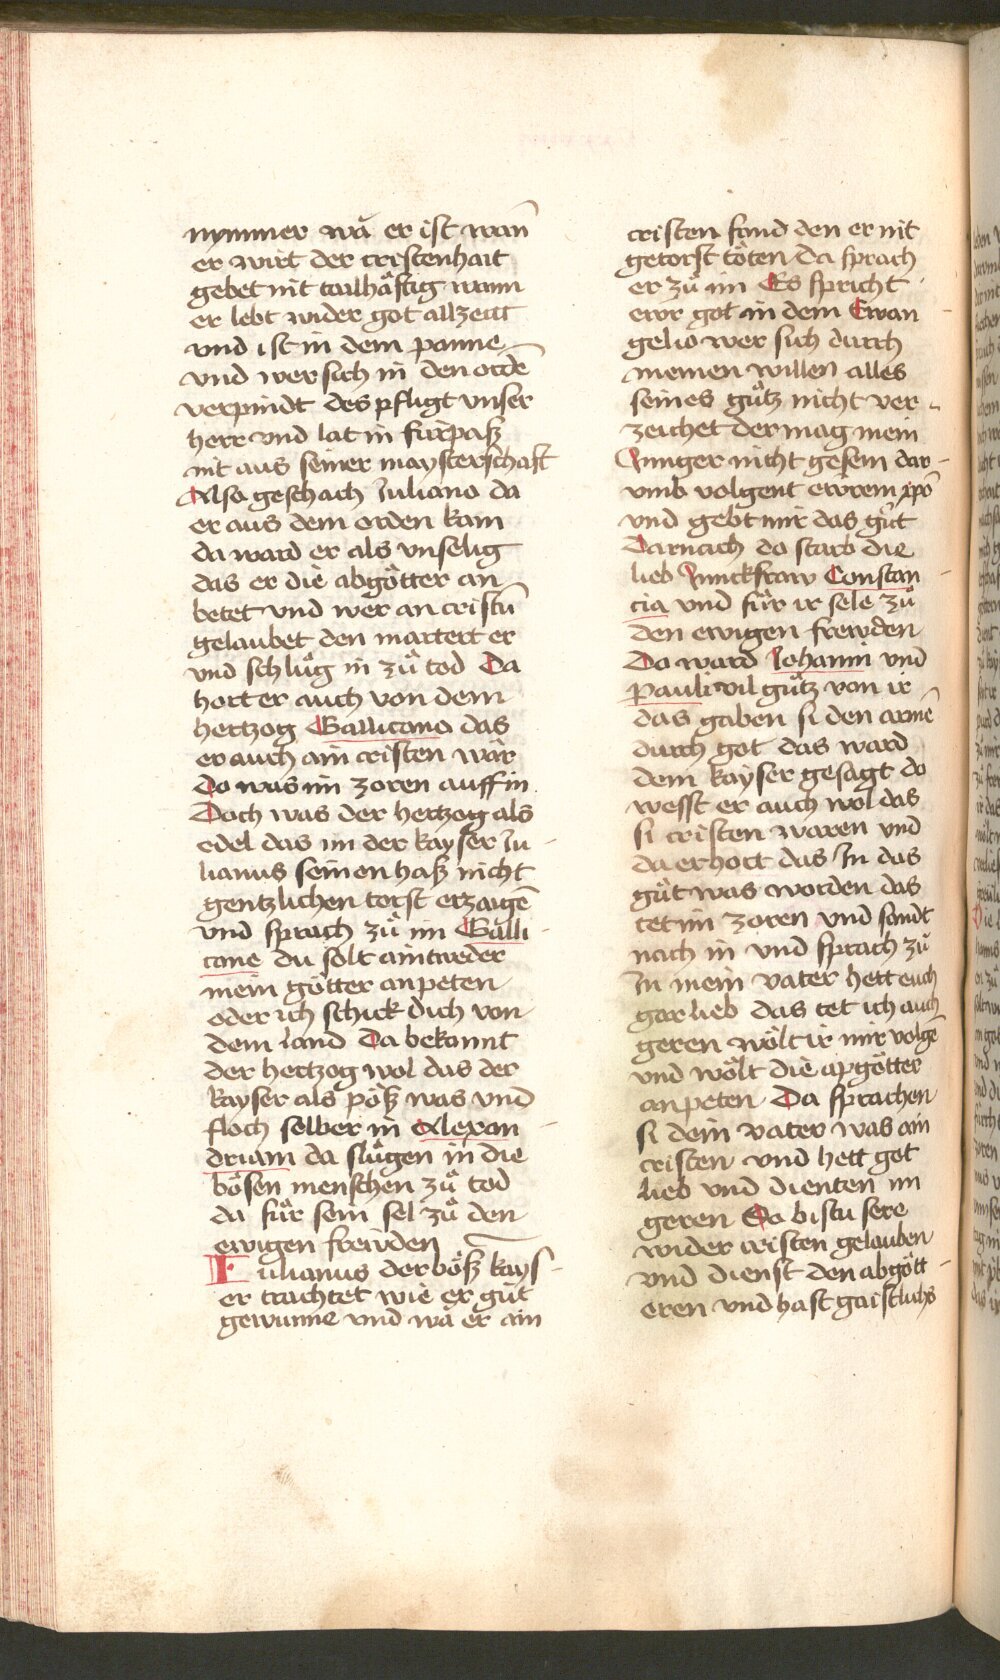 nymmer wa er ist wan̄
er wirt der cristenhait
gebet nit tailhäftig wann
er lebt wider got allzeitt
vnd ist in dem panne
vnd wer sich in den ordē
verpindt des pfligt vnser
herr vnd lat in fürpaß
nit aus seiner maysterschaft
Also geschach Juliano da
er aus dem orden kam
da ward er als vnselig
das er die abgötter an
betet vnd wer an cristū
gelaubet den martert er
vnd schlůg in zů tod Da
hort er auch von dem
hertzog Gallicano das
er auch ain cristen wär
Do was im zoren auff in
Doch was der hertzog als
edel das im der kayser Ju-
lianus seinen haß nicht
gentzlichen torst erzaigē
vnd sprach zů im Galli-
cane du solt aintweder
mein götter anpeten
oder ich schick dich von
dem land Da bekannt
der hertzog wol das der
kayser als pöß was vnd
floch selber in Alexan-
driam da slůgen in die
bösen menschen zů tod
da für sein sel zů den
ewigen frewden
Iulianus der böß kays-
er trachtet wie er gůt
gewunne vnd wa er ain
cristen fand den er nit
getorst töten da sprach
er zů im Es spricht
ewr got in dem Ewan
gelio wer sich durch
meinen willen alles
seines gůtz nicht ver-
zeichet der mag mein
Junger nicht gesein dar-
vmb volgent ewrem xpō
vnd gebt mir das gůt
Darnach do starb die
lieb Junckfraw Constan-
cia vnd für ir sele zů
den ewigen frewden
Do ward Johanni vnd
Pauli vil gůtz von ir
das gaben si den armē
durch got das ward
dem kayser gesagt do
wesst er auch wol das
si cristen waren vnd
da erhort das In das
gůt was worden das
tet im zoren vnd sandt
nach in vnd sprach zů
In mein vater hett euch
gar lieb das tet ich auch
geren wölt ir mir volgē
vnd wölt die apgötter
anpeten Da sprachen
si dein vater was ain
cristen vnd hett got
lieb vnd dienten im
geren So bistu sere
wider cristen gelauben
vnd dienst den abgött-
eren vnd hast gaistlichs